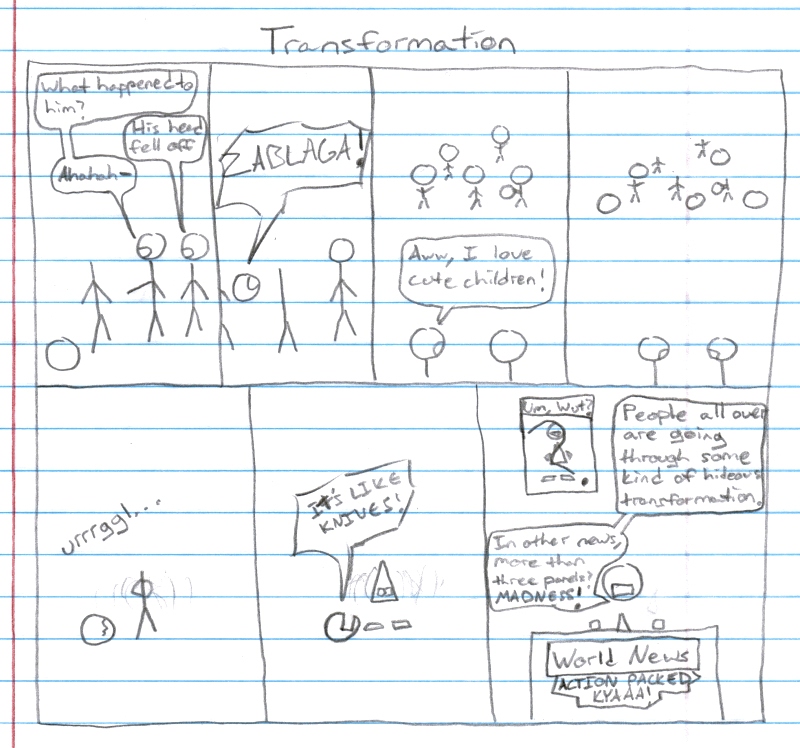 Transformation
What happened to
him?
His head
fell off
Ahahah-
ZABLAGA!
Aww, I love
cute children!
urrrggl...
IT'S LIKE
KNIVES!
Um, Wut?
People all over
are going
through some
kind of hideous
transformation.
In other news,
more than
three panels?
MADNESS!
World News
ACTION PACKED
KYAAA!